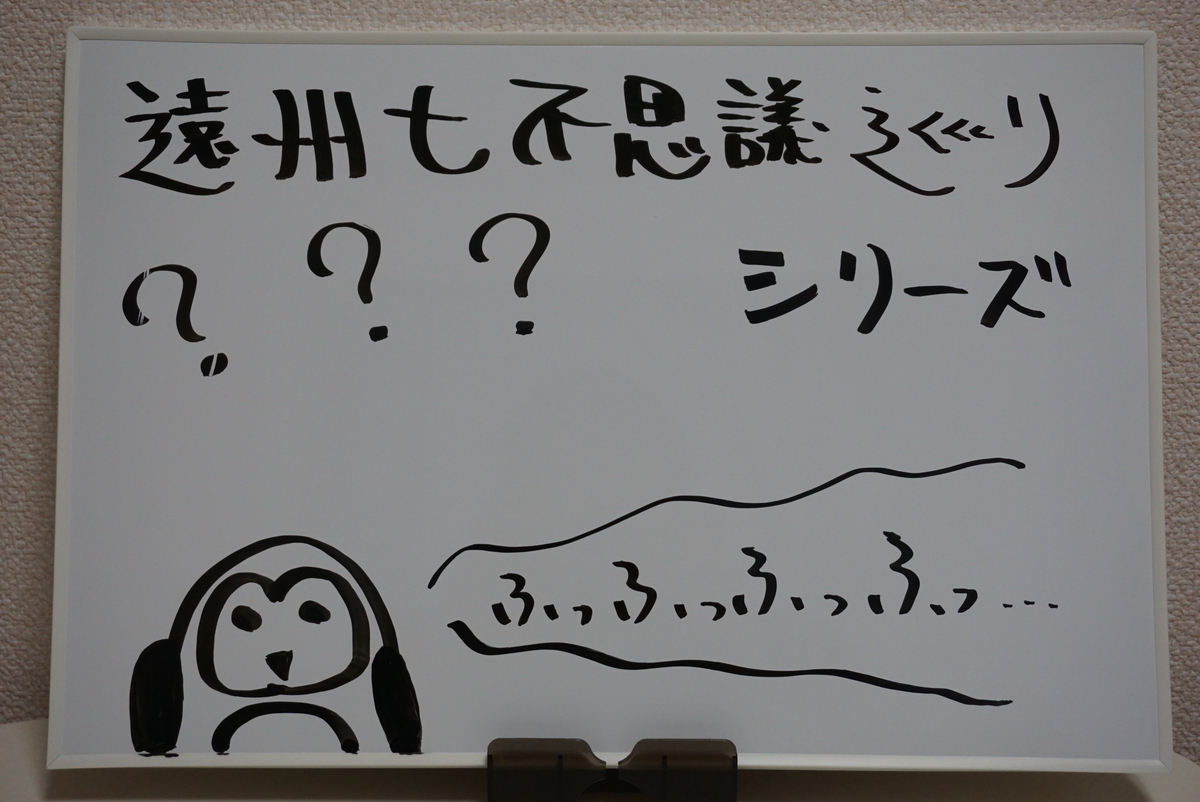 遠州七不思議巡り
? ? ? シリーズ
ふっふっふっふっ…